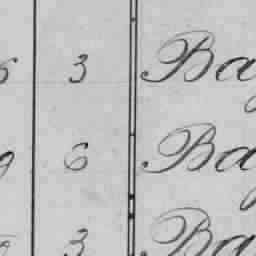 3 Ba
6 Ba
3 Ba